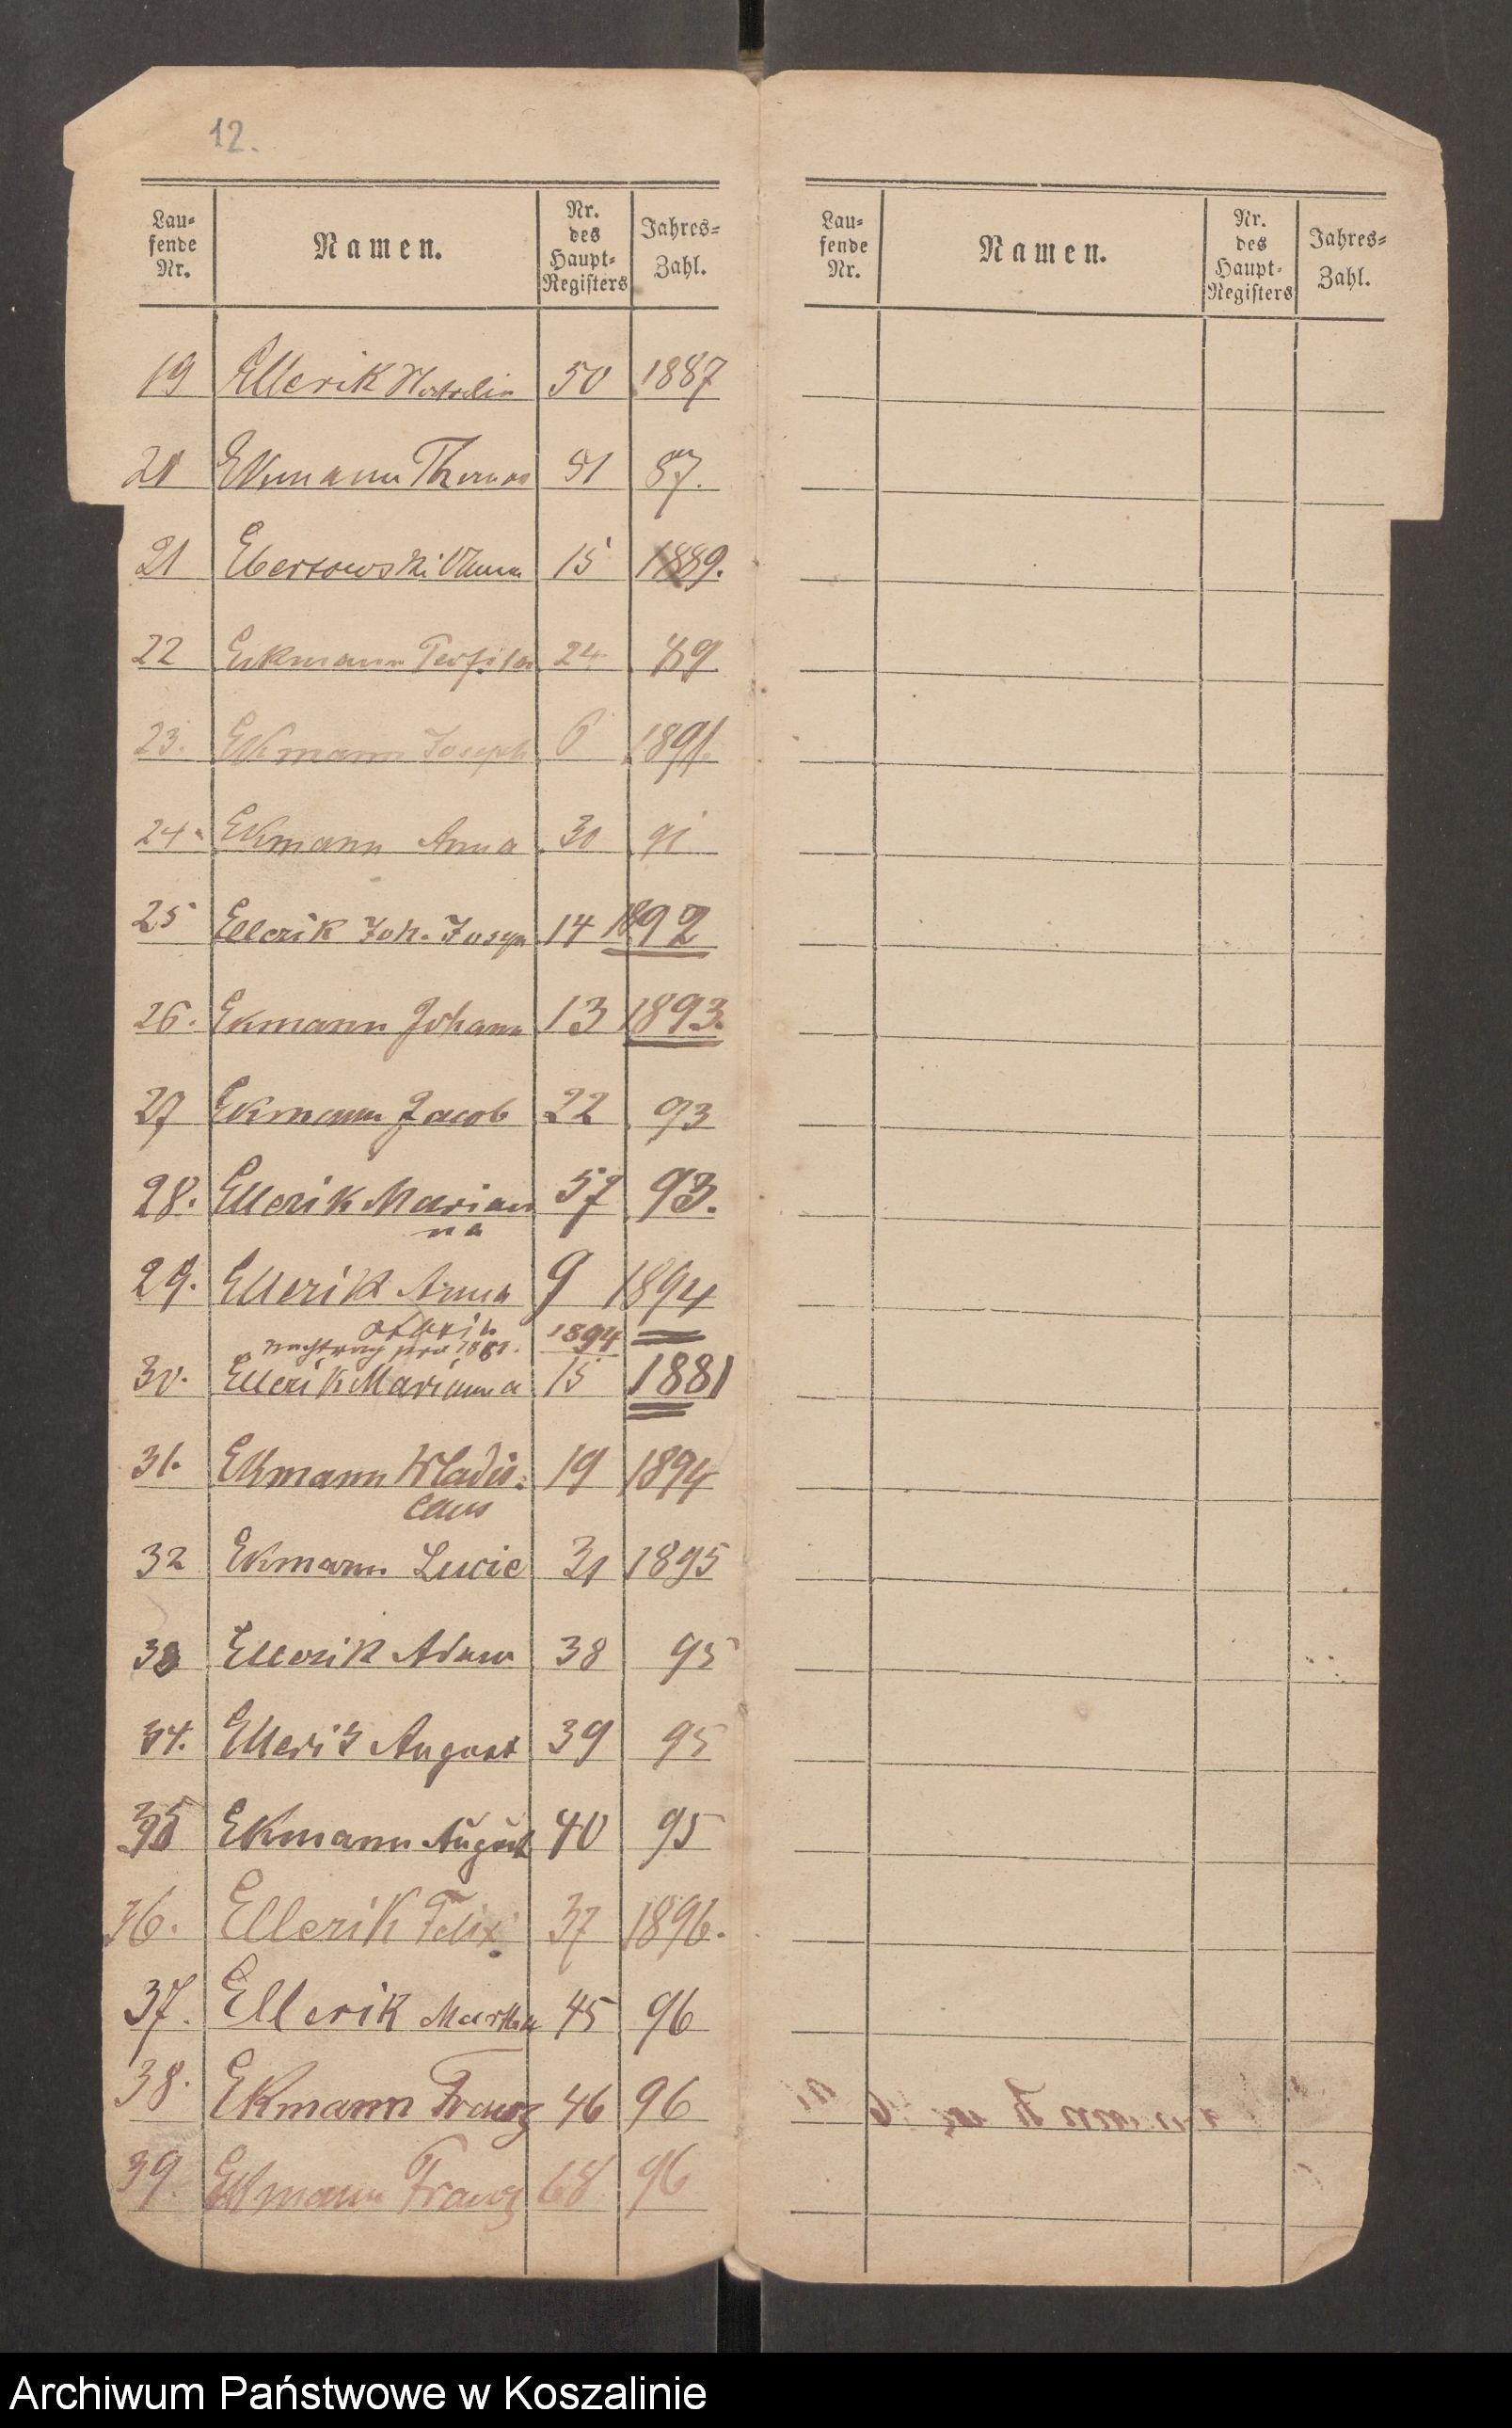 12.
Lau-
fende
Nr.
Namen.
Nr.
des
Haupt-
Registers
Jahres-
Zahl.
Lau-
fende
Nr.
Namen.
Nr.
des
Haupt-
Registers
Jahres-
Zahl.
19 Ellerik 50 1887
20 Ekmann Thomas 51 87.
21 Ebertowski 15 1889.
22 Ekmann Teofila 24 89
23. Ekmann Joseph 6 1891.
24. Ekmann Anna 30 91
25 Ellerik Joh. Joseph 14 1892
26. Ekmann Johann 13 1893.
27 Ekmann Jacob 22 93
28. Ellerik Marian 57 93.
na
29. Ellerik Anna 9 1894
1894
Nachtrag pro 1881.
30. Ellerik Marianna 15 1881
31. Ekmann Wladis- 19 1894
laus
32 Ekmann Lucie 31 1895
33 Ellerik Adam 38 95
34. Ellerik August 39 95
35 Ekmann August 40 95
36. Ellerik Felix 37 1896.
37. Ellerik Martha 45 96
38. Ekmann Franz 46 96
39. Ekmann Franz 68 96
Archiwum Państwowe w Koszalinie